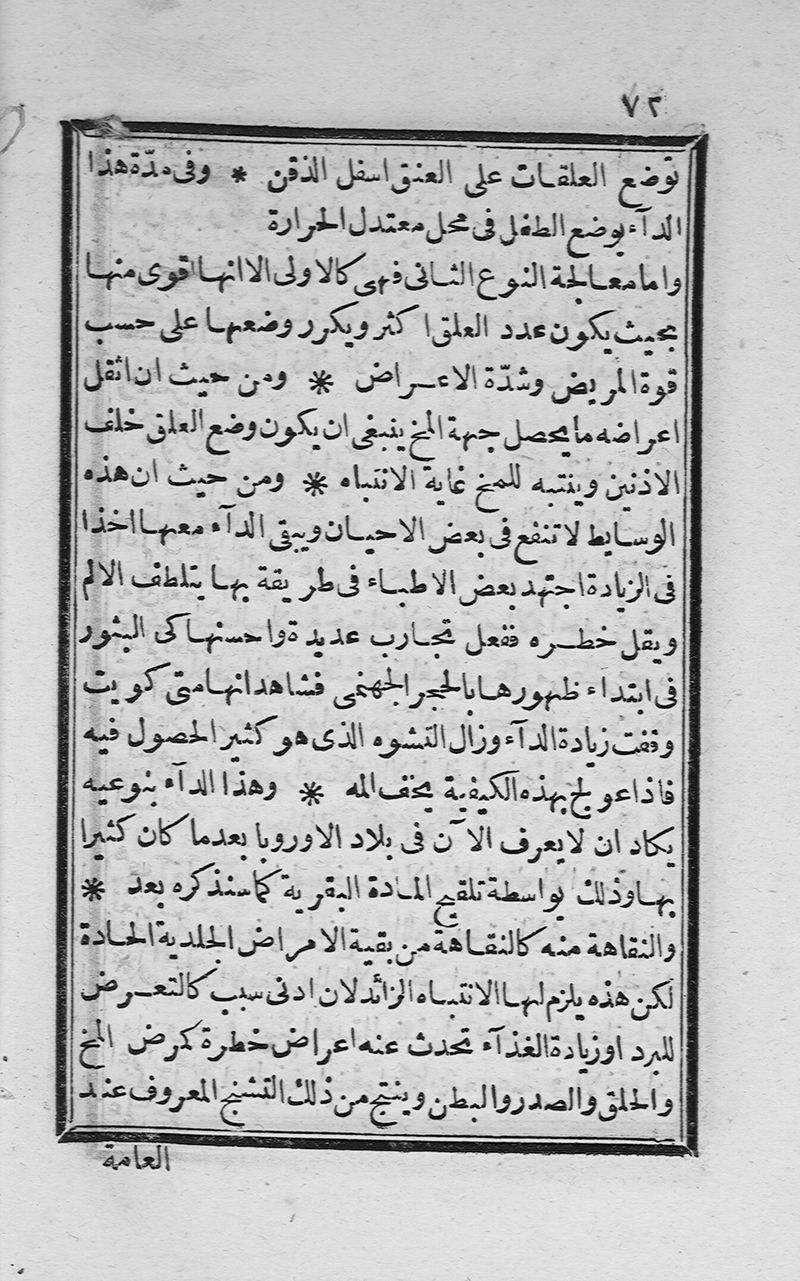 ٧٢
توضع العلقات على العنق اسفل الذقن * وفى مدّة هذا
الدآء يوضع الطفل فى محل معتدل الحرارة
واما معالجة النوع الثانى فهى كالاولى الا انها اقوى منها
بحيث يكون عدد العلق اكثر ويكرر وضعها على حسب
قوة المريض وشدّة الاعراض * ومن حيث ان اثقل
اعراضه ما يحصل جهة المخ ينبغى ان يكون وضع العلق خلف
الاذنين وينتبه للمخ غاية الانتباه * ومن حيث ان هذه
الوسايط لا تنفع فى بعض الاحيان ويبقى الدآء معها اخذا
فى الزيادة اجتهد بعض الاطباء فى طريقة بها يتلطف الالم
ويقل خطره ففعل تجارب عديدة واحسنها كى البثور
فى ابتداء ظهورها بالحجر الجهنمى فشاهد انها متى كويت
وقفت زيادة الدآء وزال التشوه الذى هو كثير الحصول فيه
فاذا عولج بهذه الكيفية يخف المه * وهذا الدآء بنوعيه
يكاد ان لا يعرف الآن فى بلاد الاوروبا بعد ما كان كثيرا
بها وذلك بواسطة تلقيح المادة البقرية كما سنذكره بعد *
والنقاهة منه كالنقاهة من بقية الامراض الجلدية الحادة
لكن هذه يلزم لها الانتباه الزائد لان ادنى سبب كالتعرض
للبرد او زيادة الغذآء تحدث عنه اعراض خطرة كمرض المخ
والحلق والصدر والبطن وينتج من ذلك التشنج المعروف عند
العامة